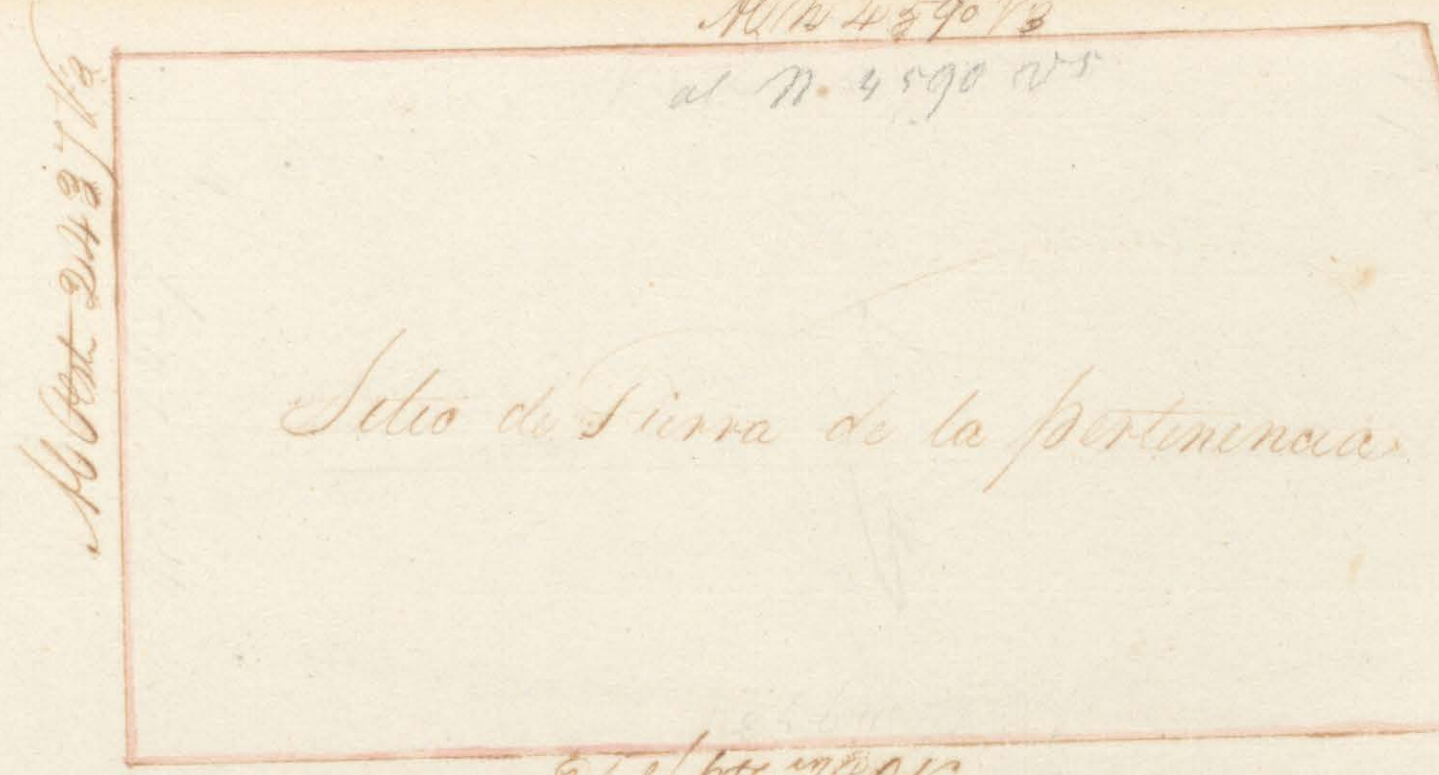 Al N 4590 Vs
al N. 4590 Vs
Al Oest 2437 Vs
Sitio de Tierra de la pertinencia